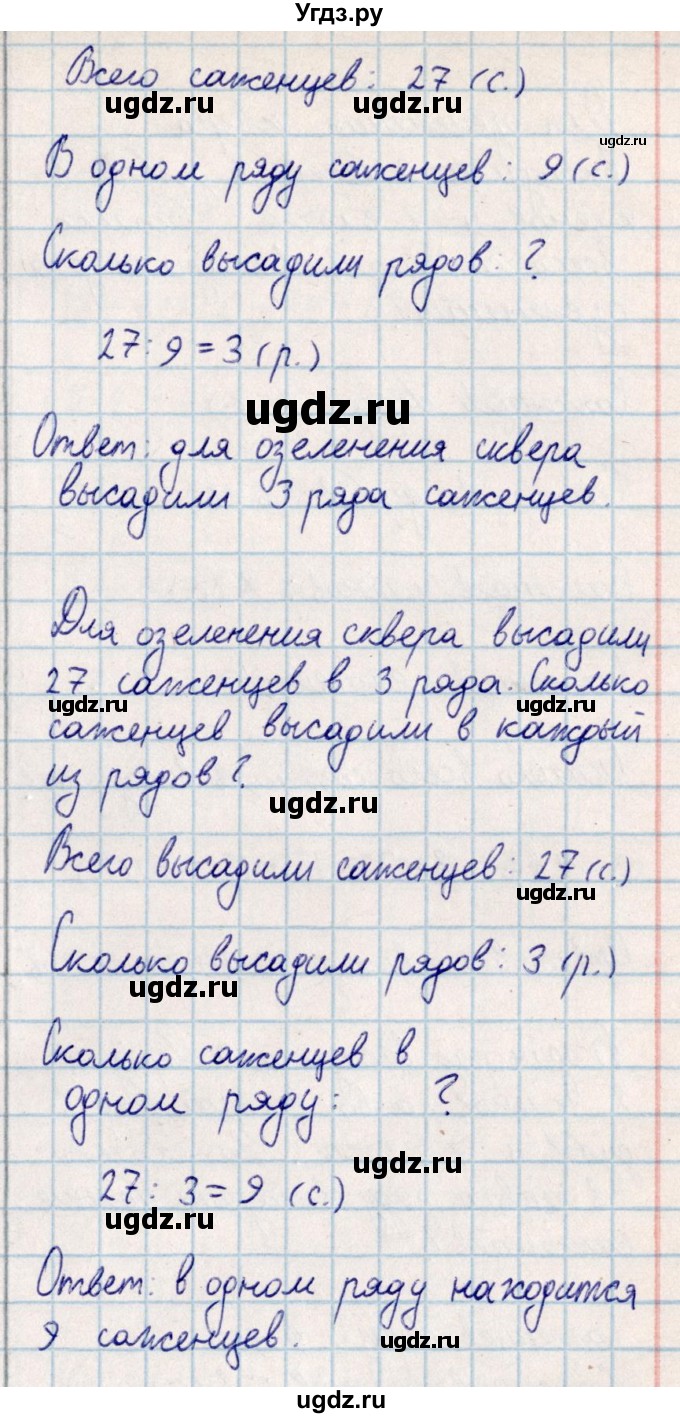 Угдз.ру
Всего саженцев: 27 (с.)
ugdz.ru ugdz.ru
ugdz.ru
В одном ряду саженцев: 9 (с.)
Сколько высадили рядов: ?
27:9=3 (р.)
ugdz.ru
Ответ: для озеленения сквера
высадили 3 ряда саженцев.
Для озеленения сквера высадили
27 саженцев в 3 ряда. Сколько
ugdz.ru ugdz.ru
саженцев высадили в каждый
из рядов?
ugdz.ru
Всего высадили саженцев: 27 (с.)
ugdz.ru
Сколько высадили рядов: 3 (р.)
ugdz.ru
Сколько саженцев в
одном ряду: ?
ugdz.ru
27: 3=9 (с.)
ugdz.ru
Ответ: в одном ряду находится
9 саженцев.
ugdz.ru
ugdz.ru